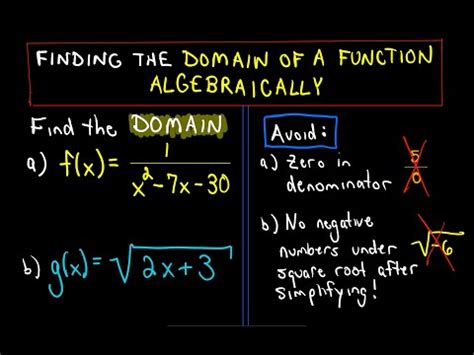 FINDING THE DOMAIN OF A FUNCTION
ALGEBRAICALLY
Find the DOMAIN
a) f(x) = 1 / x² - 7x - 30
b) g(x) = √2x + 3
Avoid:
a) Zero in
denominator
5/0
b) No negative
numbers under
square root after
simplifying!
√-6